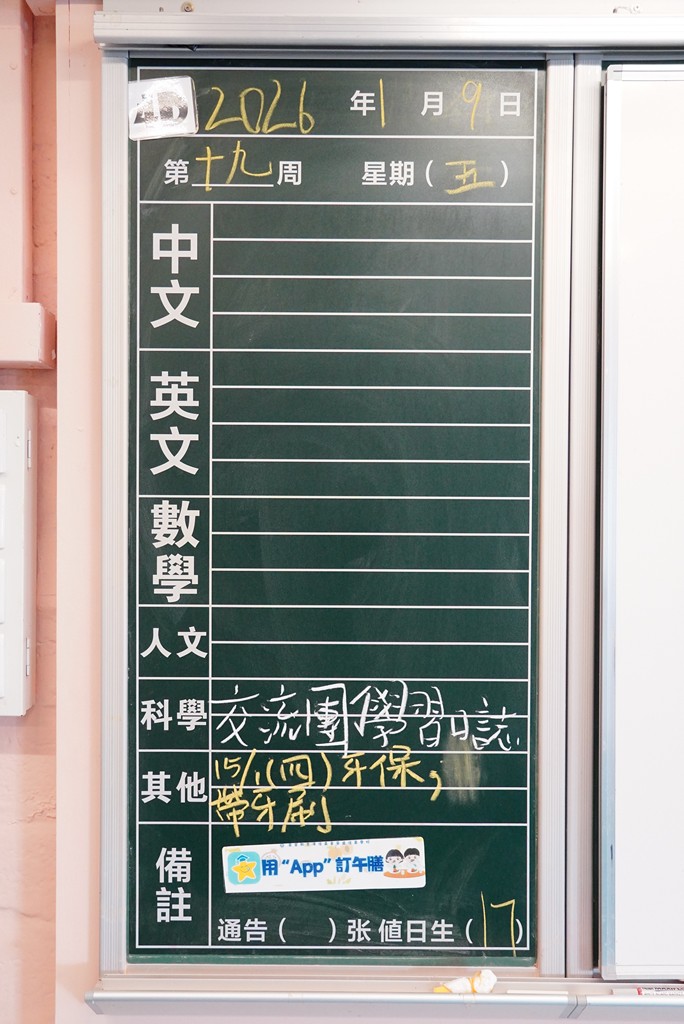 4D
2026 年 1 月 9 日
第十九周 星期(五)
中文
英文
數學
人文
科學 交流團學習日誌
其他 15/1(四)牙保,
帶牙刷
備註
用“App”訂午膳
通告( )张 值日生(17)